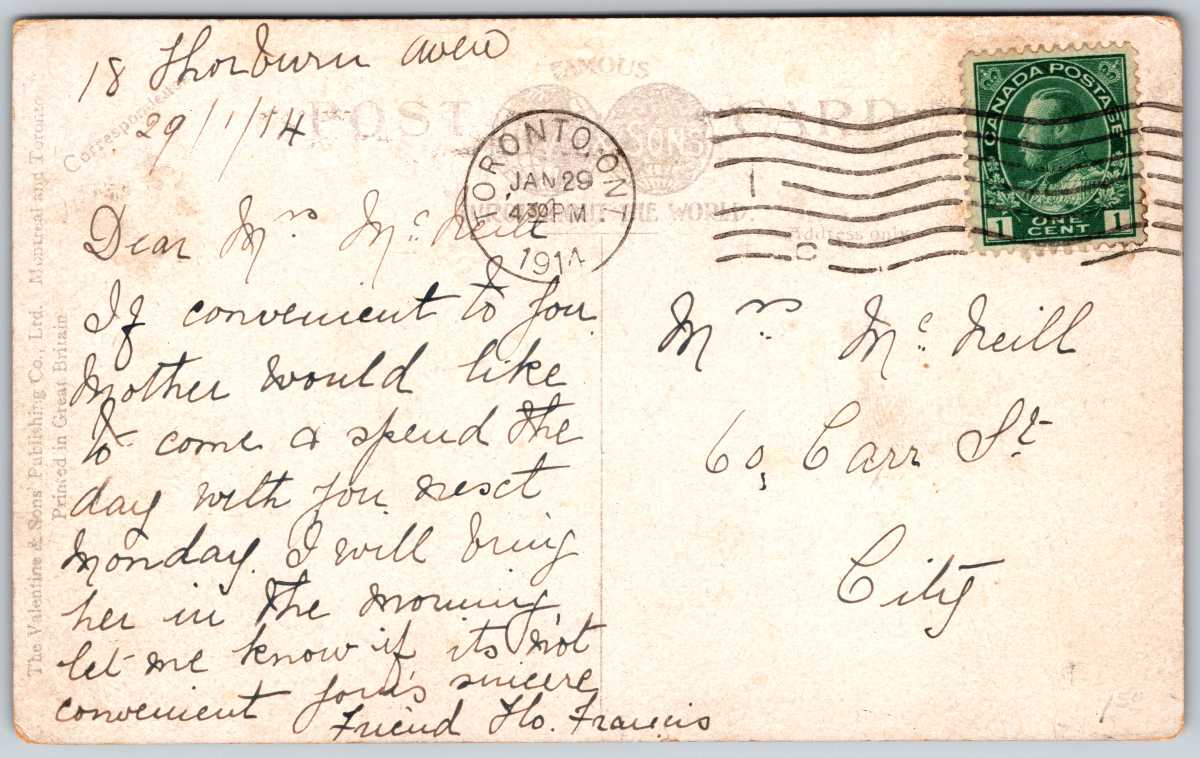 18 Thorburn Aven
29/1/14
Correspondence
FAMOUS
POST CARD
SONS
THE WORLD.
Address only
TORONTO, ON
JAN 29
4 30 PM
1914
1
C
CANADA POSTAGE
1 ONE CENT 1
Dear Mrs McNeill
If convenient to you
Mother would like
to come & spend the
day with you next
Monday. I will bring
her in the morning
let me know if its not
convenient your's sincere
Friend Flo. Francis
Mrs McNeill
60, Carr St
City
The Valentine & Sons' Publishing Co., Ltd. Montreal and Toronto.
Printed in Great Britain
1.50